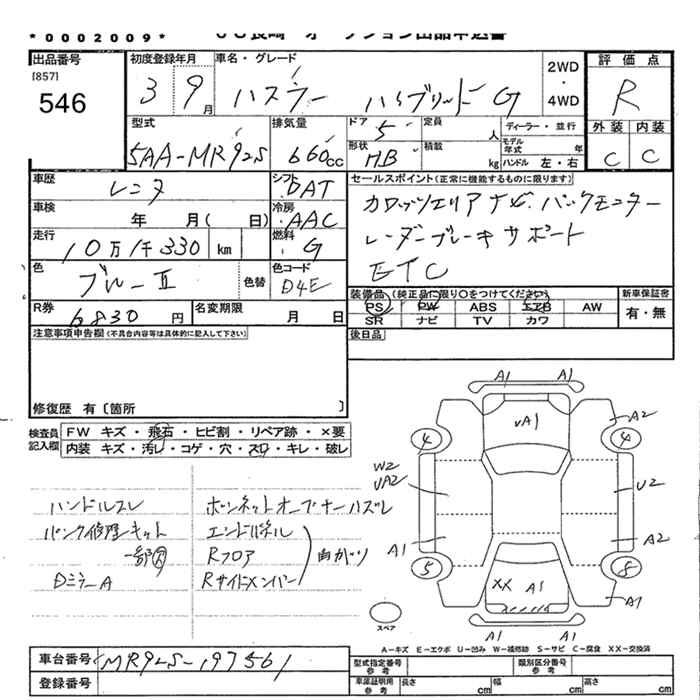 *0002009*
出品番号 [857] 546
初度登録年月 3 9月
車名・グレード ハスラー ハイブリッド G
2WD・4WD
評価点 R
型式 5AA-MR92S
排気量 660cc
ドア 5
形状 HB
定員 人
積載 kg
ディーラー・並行
モデル年式 年
ハンドル 左・右
外装 C
内装 C
車歴 レンタ
シフト DAT
車検 年 月( 日)
冷房 AAC
走行 10万1千330 km
燃料 G
色 ブルーⅡ 色替
色コード D4E
R券 6830円
名変期限 月 日
セールスポイント(正常に機能するものに限ります)
カロッツェリアナビ・バックモニター
レーダーブレーキサポート
ETC
装備品(純正品に限り○をつけてください)
PS PW ABS エアB AW
SR ナビ TV カワ
新車保証書 有・無
後日品
注意事項申告欄(不具合内容等は具体的に記入して下さい)
修復歴 有〔箇所 〕
検査員記入欄
FW キズ・飛石・ヒビ割・リペア跡・×要
内装 キズ・汚レ・コゲ・穴・スレ・キレ・破レ
ハンドルスレ
パンク修理キット
一部欠
DミラーA
ボンネットオープナーハズレ
エンドパネル
Rフロア
Rサイドメンバー
曲がり
A1 A1
A1
A2
4 4
W2
UA2
U2
A1
A2
5 8
XX A1
A1
A1 A1
スペア
A-キズ E-エクボ U-凹み W-補修跡 S-サビ C-腐食 XX-交換済
車台番号 MR92S-197561
登録番号
型式指定番号 参考
類別区分番号 参考
車庫証明用 参考
長さ cm 幅 cm 高さ cm